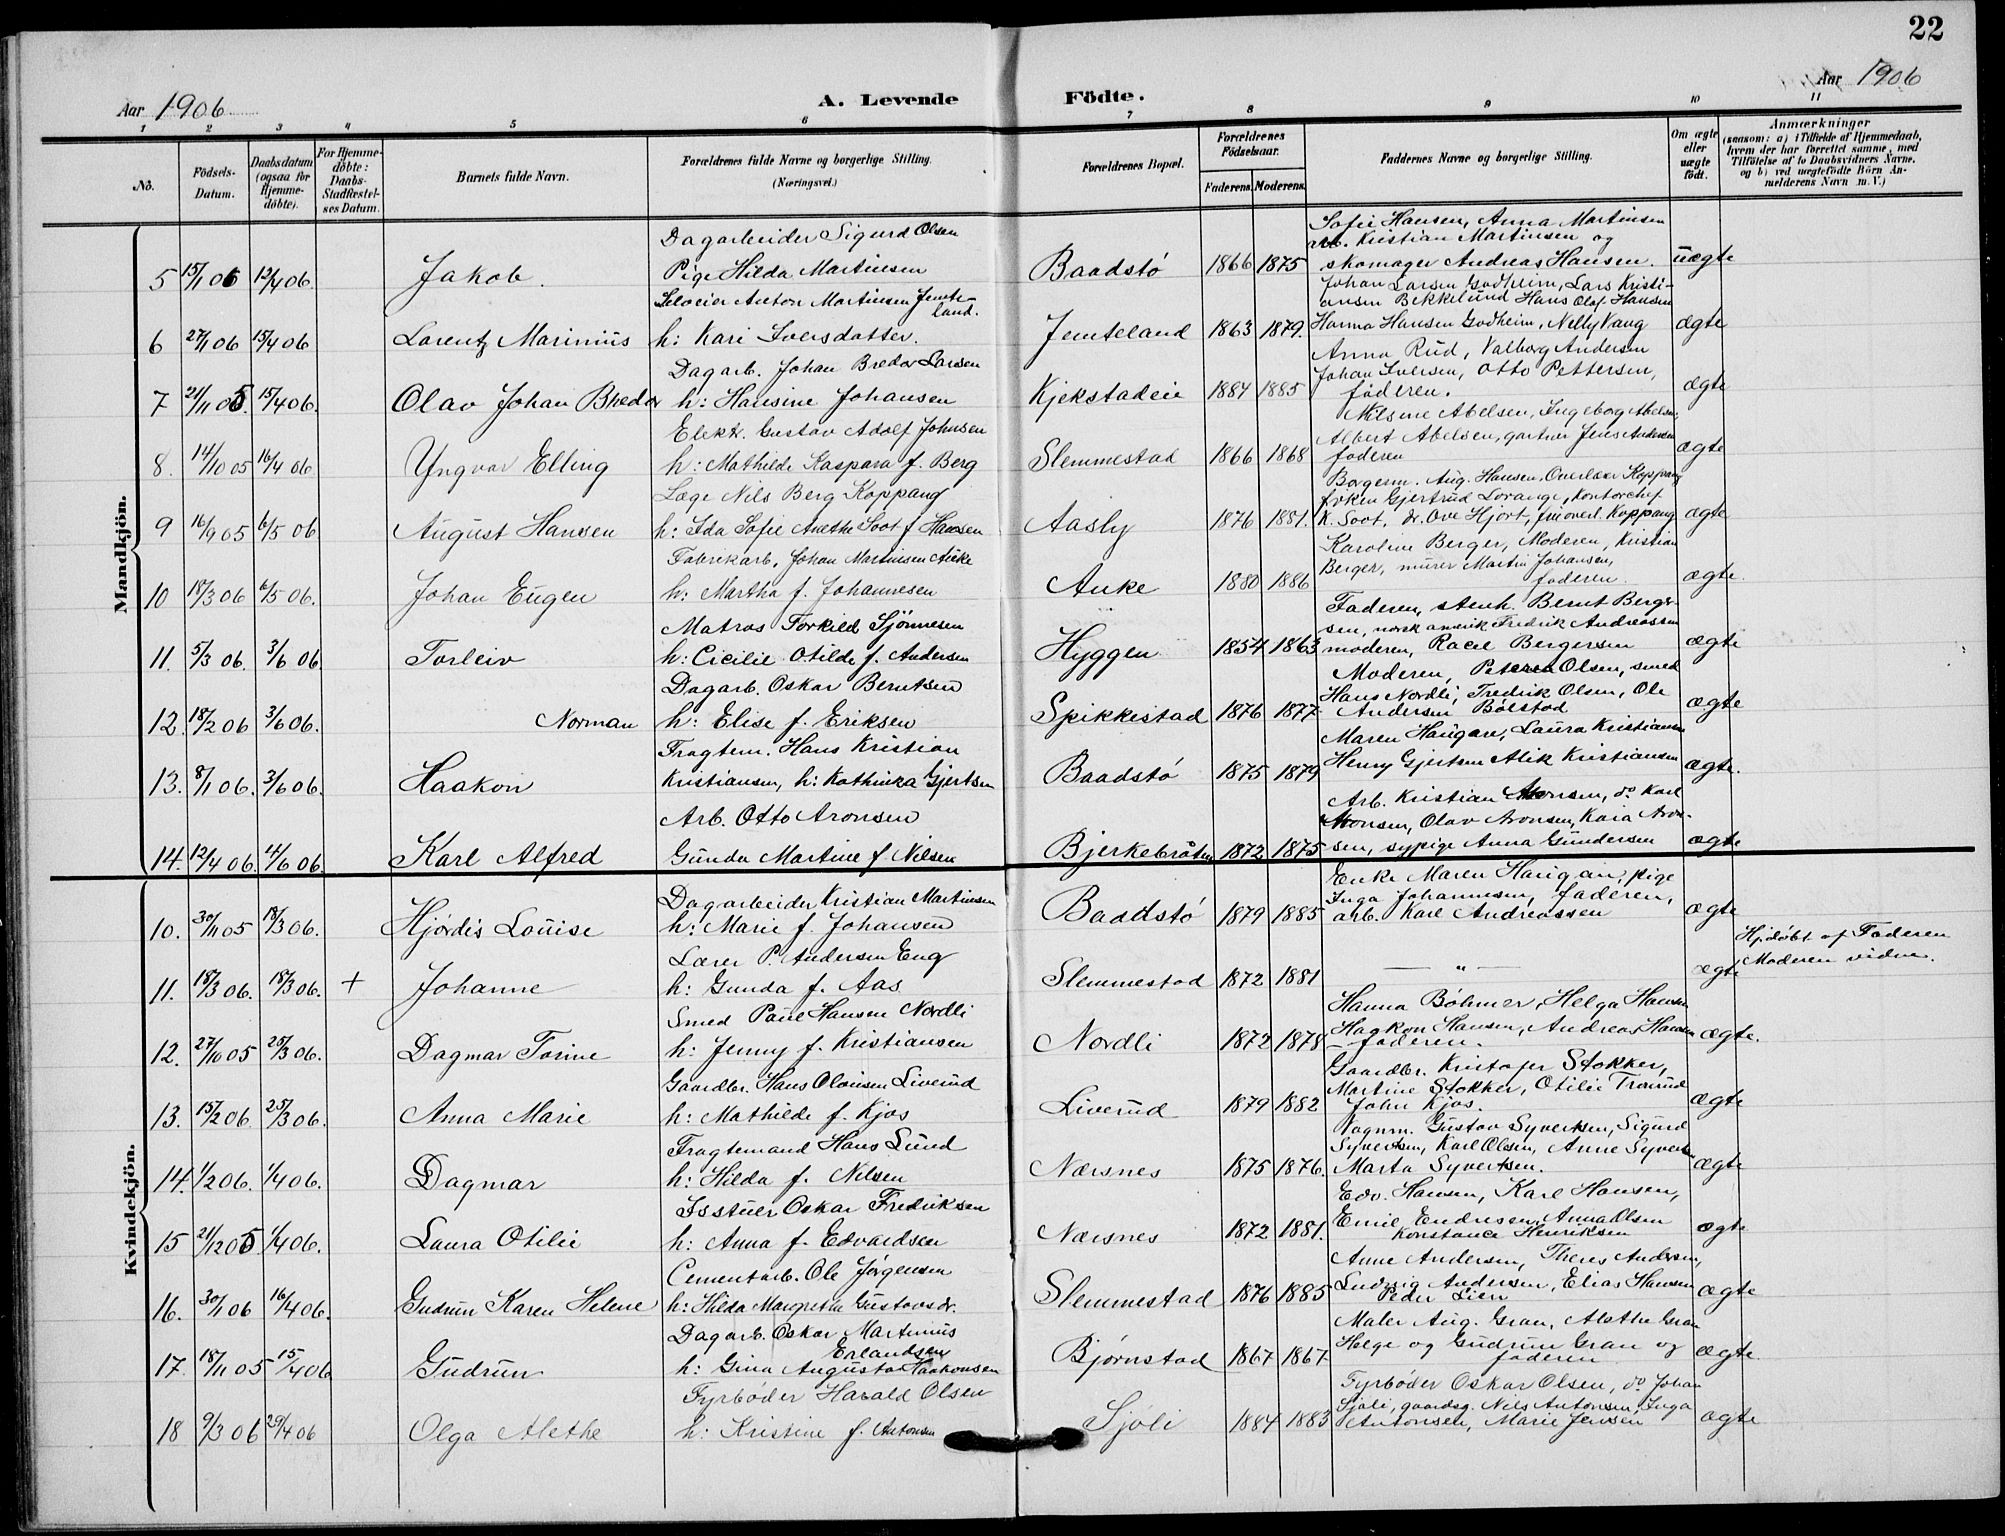 22
Aar 1906 A. Levende Födte. Aar 1906
1 2 3 4 5 6 7 8 9 10 11
No.
Födsels-Datum.
Daabsdatum (ogsaa for Hjemmedöbte).
For Hjemmedöbte: Daabs-Stadfæstelses Datum.
Barnets fulde Navn.
Forældrenes fulde Navne og borgerlige Stilling. (Næringsvei.)
Forældrenes Bopæl.
Forældrenes Födselsaar.
Faderens. Moderens.
Faddernes Navne og borgerlige Stilling.
Om ægte eller uægte födt.
Anmærkninger
(saasom: a) i Tilfælde af Hjemmedaab, hvem der har forrettet samme, med Tilföielse af to Daabsvidners Navne, og b) ved uægtefödte Börn Anmelderens Navn m. V.)
Mandkjön.
Dagarbeider Sigurd Olsen Sofie Hansen, Anna Martinsen
arb. Kristian Martinsen og
5 15/1 06 12/4 06. Jakob. Pige Hilda Martinsen Baadstö 1866 1875 skomager Andreas Hansen. uægte
Selveier Anton Martinsen Jemteland. Johan Larsen Godheim, Lars Kristiansen Bekkelund Hans Olaf Hansen
6 27/1 06 15/4 06 Lorentz Marinius h: Kari Iversdatter. Jemteland 1863 1879. Hanna Hansen Godheim, Nelly Vang ægte
Dagarb. Johan Bredor Larsen Anna Rud, Valborg Andersen
Johan Iversen, Otto Pettersen,
7 21/11 05. 15/4 06. Olav Johan Bhedor h: Hansine Johansen Kjekstadeie 1884 1885 faderen. ægte
Elektr. Gustav Adolf Johnsen Nilsine Abelsen, Ingeborg Abelsen,
Albert Abelsen, gartner Jens Andersen
8. 14/10 05 16/4 06 Yngvar Elling h: Mathilde Kaspara f. Berg Slemmestad 1866 1868 faderen ægte
Læge Nils Berg Koppang Borgerm. Aug. Hansen, Overlær Koppang
frøken Gjertrud Lorange, Kontorchef
9 16/9 05 6/5 06 August Hansen h: Ida Sofie Anethe Soot f Hansen Aasly 1876 1881. K. Soot, dr. Ove Hjort, fru overl. Koppang ægte
Fabrikarb. Johan Martinsen Auke Karoline Berger, Moderen, Kristian
Berger, murer Martin Johansen,
10 18/3 06 6/5 06. Johan Eugen h: Martha f. Johannesen Auke 1880 1886 faderen. ægte.
Matros Torkild Sjönnesen Faderen, stenh. Bernt Bergersen, norsk amerik Fredrik Andreassen
11. 5/3 06. 3/6 06 Torleiv h: Cicilie Otilde f. Andersen Hyggen 1854 1863 moderen, Racel Bergersen ægte
Dagarb. Oskar Berntsen Moderen, Petrea Olsen, smed
Hans Nordli, Fredrik Olsen, Ole
12. 18/2 06 3/6 06. Norman h: Elise f. Eriksen Spikkestad 1876 1877 Andersen Bölstad ægte
Fragtem. Hans Kristian Maren Haugan, Laura Kristiansen
13. 8/1 06. 3/6 06. Haakon Kristiansen, h: Kathinka Gjertsen Baadstö 1875 1879 Henry Gjertsen Alik Kristiansen ægte.
Arb. Otto Aronsen Arb. Kristian Aronsen, do Karl
Aronsen, Olav Aronsen, Kaia Aronsen, sypige Anna Gundersen
14. 12/4 06. 4/6 06. Karl Alfred Gunda Martine f Nilsen Bjerkebråten 1872 1875 ægte
Kvindekjön.
Dagarbeider Kristian Martinsen Enke Maren Haugan, pige
Inga Johannesen, faderen,
10. 30/11 05 18/3 06. Hjördis Louise h: Marie f. Johansen Baadstö 1879 1885 arb. Karl Andreassen ægte
Lærer P. Andersen Eng Hjdöbt af Faderen
11. 18/3 06. 18/3 06. + Johanne h: Gunda f. Aas Slemmestad 1872 1881 — " — ægte Moderen vidne.
Smed Paul Hansen Nordli Hanna Böhmer, Helga Hansen
Haakon Hansen, Andreas Hansen
12. 27/10 05 25/3 06. Dagmar Torine h: Jenny f. Kristiansen Nordli 1872 1878 – faderen. ægte.
Gaardbr. Hans Olausen Liverud Gaardbr. Kristofer Stokker,
Martine Stokker, Otilie Tronrud
13. 15/2 06. 25/3 06. Anna Marie h: Mathilde f. Kjos Liverud 1879 1882 John Kjos. ægte
Fragtemand Hans Lund Vognm. Gustav Syvertsen, Sigurd
Syvertsen, Karl Olsen, Anne Syvertsen
14. 1/2 06. 1/4 06. Dagmar h: Hilda f. Nilsen Nærsnes 1875 1876. Marta Syvertsen. ægte
Isstuer Oskar Fredriksen Edv. Hansen, Karl Hansen,
Emil Endresen, Anna Olsen
15 21/12 05 1/4 06. Laura Otilie h: Anna f. Edvardsen Nærsnes 1872 1881. Konstance Henriksen ægte
Cementarb. Ole Jörgensen Anne Andersen, Theres Andersen,
Ludvig Andersen, Elias Hansen
16. 30/1 06 16/4 06. Gudrun Karen Helene h: Hilda Margrethe Gustavsdr. Slemmestad 1876 1885 Peder Lien ægte
Dagarb. Oskar Martinius Erlandsen Maler Aug. Gran, Alethe Gran
Helge og Gudrun Gran og
17. 18/11 05 15/4 06 Gudrun h: Gina Augusta Haakonsen Björnstad 1867 1867 faderen ægte
Fyrböder Harald Olsen Fyrböder Oskar Olsen, do Johan
Sjöli, gaardsg. Nils Antonsen, Inga
18 9/3 06 29/4 06 Olga Alethe h: Kristine f. Antonsen Sjöli 1884 1883 Antonsen, Marie Jensen ægte